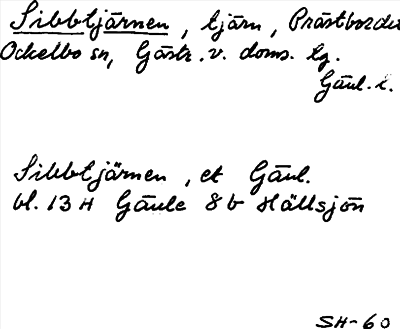 Sibbtjärnen, tjärn, Prästbordet
Ockelbo sn, Gästr. v. doms. tg.
Gävl. l.
Sibbtjärnen, ek Gävl.
bl. 13 H Gävle 8 b Hällsjön
SH-60